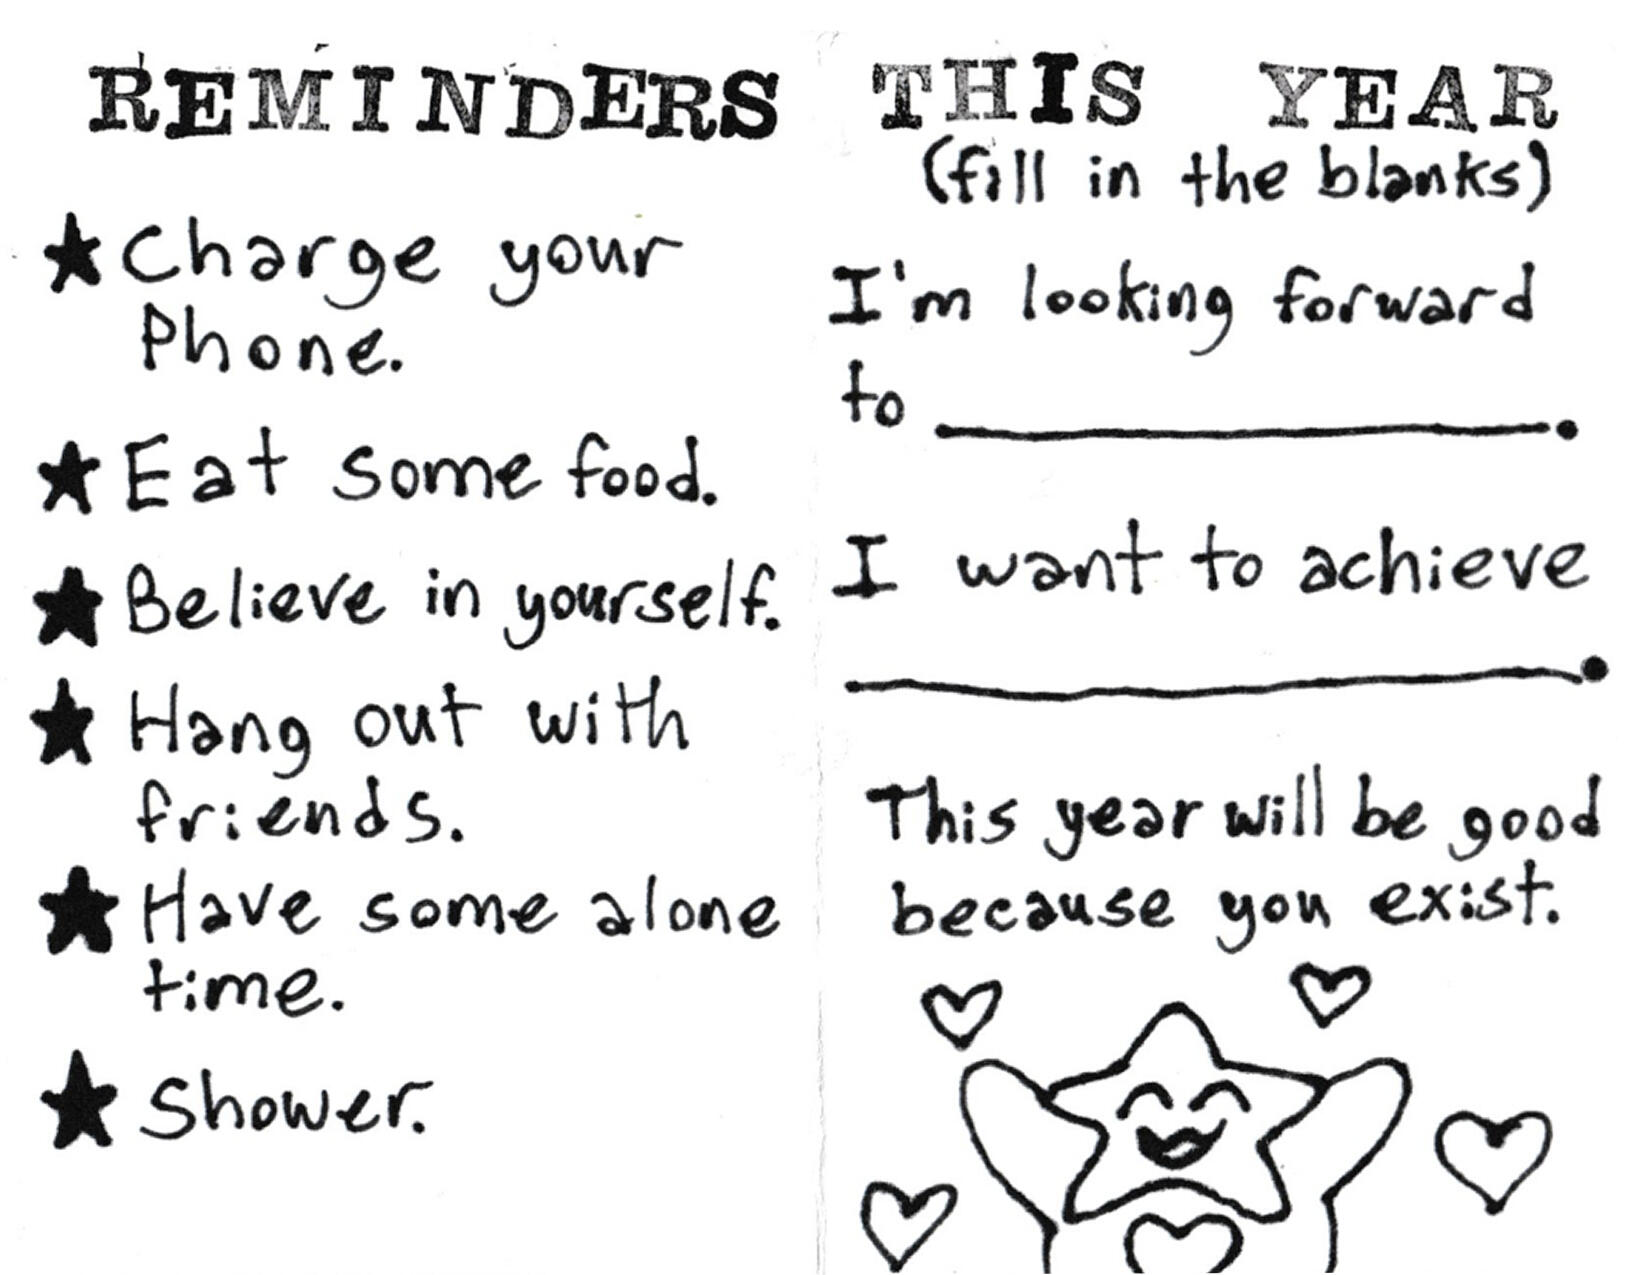 REMINDERS
★ Charge your
Phone.
★ Eat some food.
★ Believe in yourself.
★ Hang out with
friends.
★ Have some alone
time.
★ Shower.
THIS YEAR
(fill in the blanks)
I'm looking forward
to ____________.
I want to achieve
____________.
This year will be good
because you exist.